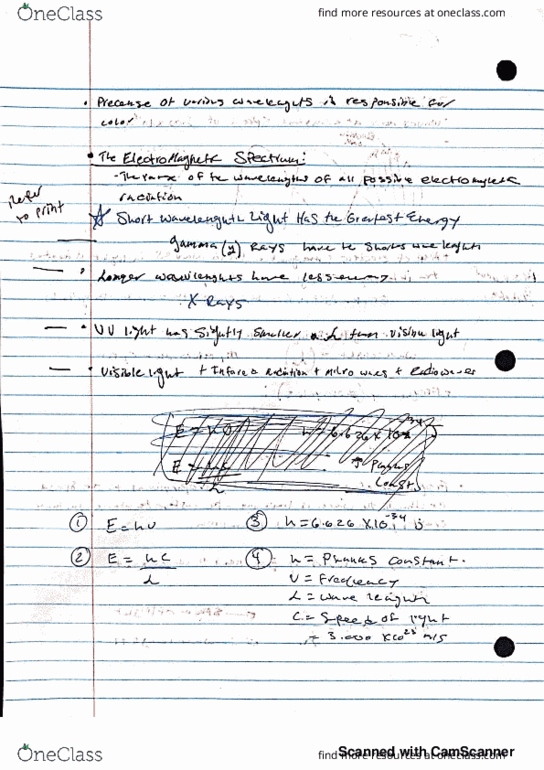 OneClass
find more resources at oneclass.com
• Precense of various wavelenghts is responsible for
color
• The ElectroMagnetic Spectrum:
-The range of the wavelengths of all possive electromagnetic
radiation
Refer
to print
☆ Short wavelength Light Has the Greatest Energy
gamma (γ) Rays have the shorts wavelenghts
— • Longer wavelenghts have less energy
X Rays
— • UV light has slightly smaller λ than vision light
— • Visible light + Infared radiation + Micro waves + Radiowaves
E = hυ h = 6.626 x 10
E = hc
λ
Planks
Const
① E = hυ ③ h = 6.626 x 10^-34
② E = hc ④ h = Planks constant.
λ υ = Frequency
λ = wave length
C = speed of light
= 3.000 x
m/s
OneClass
find more resources at oneclass.com
Scanned with CamScanner